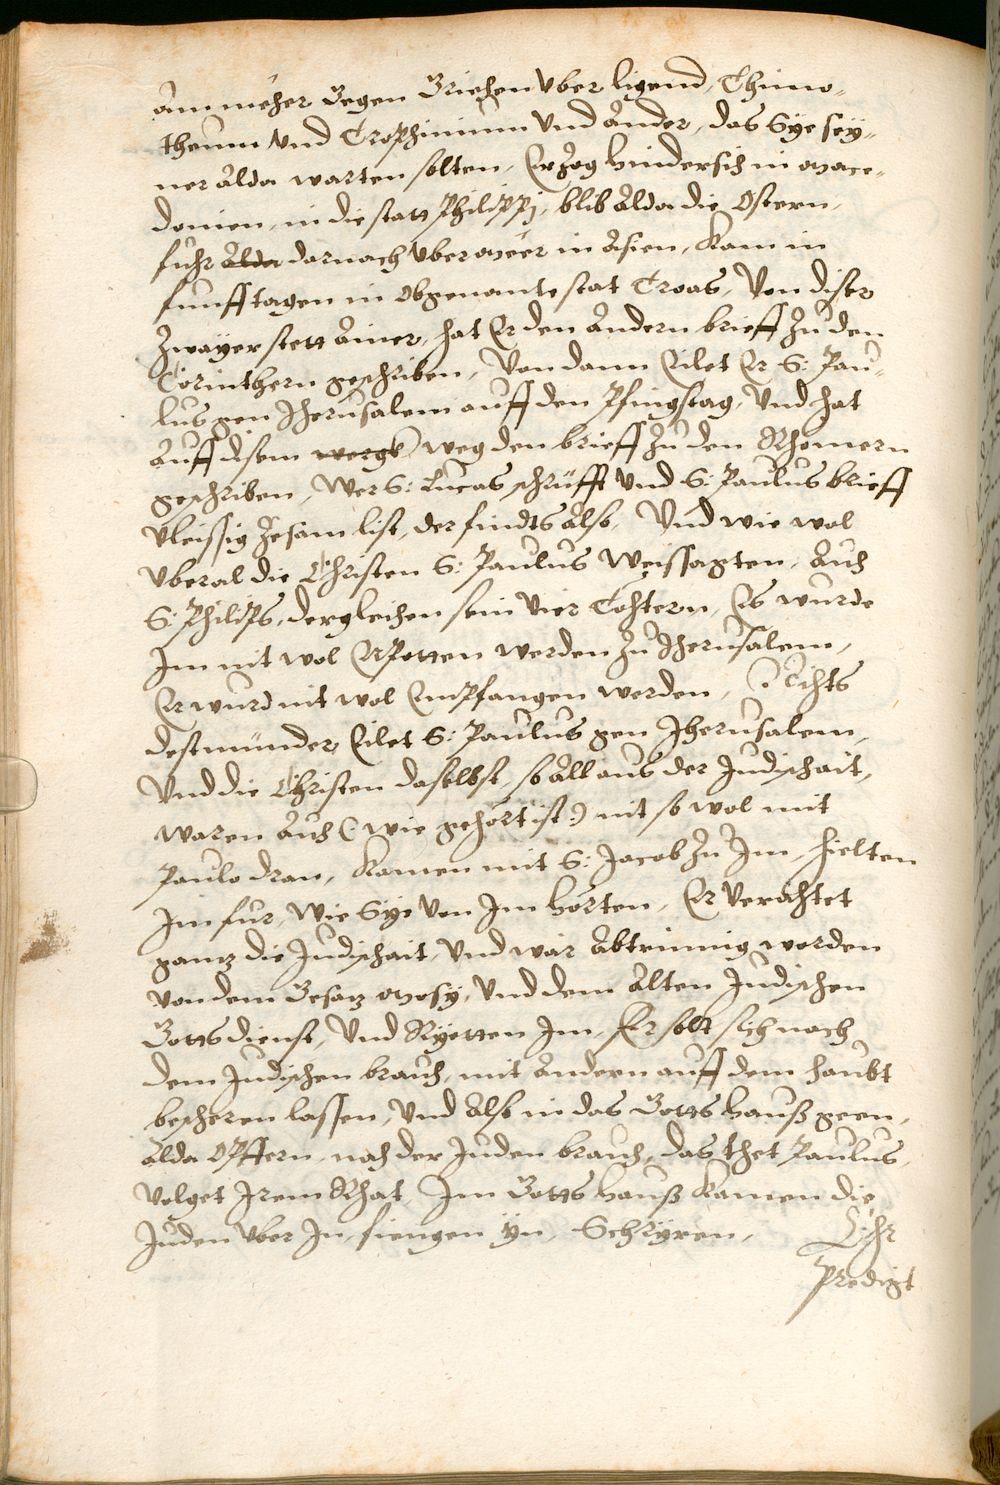 am meher Gegen Griechen vber ligend, Thimo-
theum vnd Trophimum vnd Ander, das Sye sey-
ner Alda warten solten, Er Zog hindersich in Mace-
donien, in die statt Philippj, blib Alda die Ostern,
fuhr Alda darnach vber Meer in Asien, Kam in
funff tagen in Obgenante stat Troas, Von diser
Zwayer stett Ainer, hat Er den Andern brieff Zu den
Corinthern geschriben, Von dann Eilet Er S: Pau-
lus gen Jherusalem auff den Pfingstag, Vnd hat
Auff disem weg den brieff Zu den Rhomern
geschriben, Wer S: Lucas schrüfft vnd S: Paulus brieff
vleissig Zesam list, der findts Also, Vnd wie wol
vberal die Christen S: Paulus Weissagten, Auch
S: Philips, dergleichen sein vier Tochtern, Es wurde
Jm nit wol Erbotten werden Zu Jherusalem,
Er wurd nit wol Empfangen werden, Nichts
destminder Eilet S: Paulus gen Jherusalem,
Vnd die Christen daselbst, so All aus der Judischait,
waren Auch (: wie gehört ist :) nit so wol mit
Paulo dran, Kamen mit S: Jacob Zu Jm, hielten
Jm fur, Wie Sye von Jm hörten, Er verachtet
gantz die Judischait, Vnd wär Abtrinnig worden
von dem Gesatz Mosy, Vnd dem Alten Judischen
Gottsdienst, Vnd Ryetten Jm, Er solt sich nach
dem Judischen brauch, mit Andern auff dem haubt
bescheren lassen, Vnd Also in das Gotts hauß geen,
Alda Opffern, nach der Juden brauch, das thet Paulus,
Volget Jrem Rhat, Jm Gotts hauß Kamen die
Juden vber Jn, fiengen yn, Schryren,
Diser
Predigt